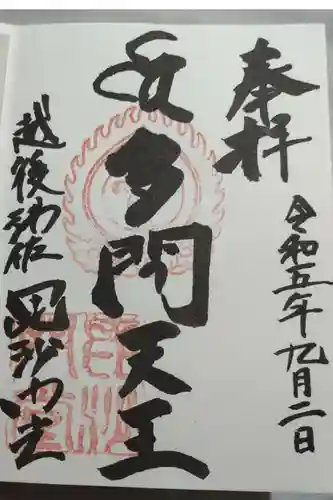 奉拝
令和五年九月二日
多門天王
越後浦佐 毘沙門堂